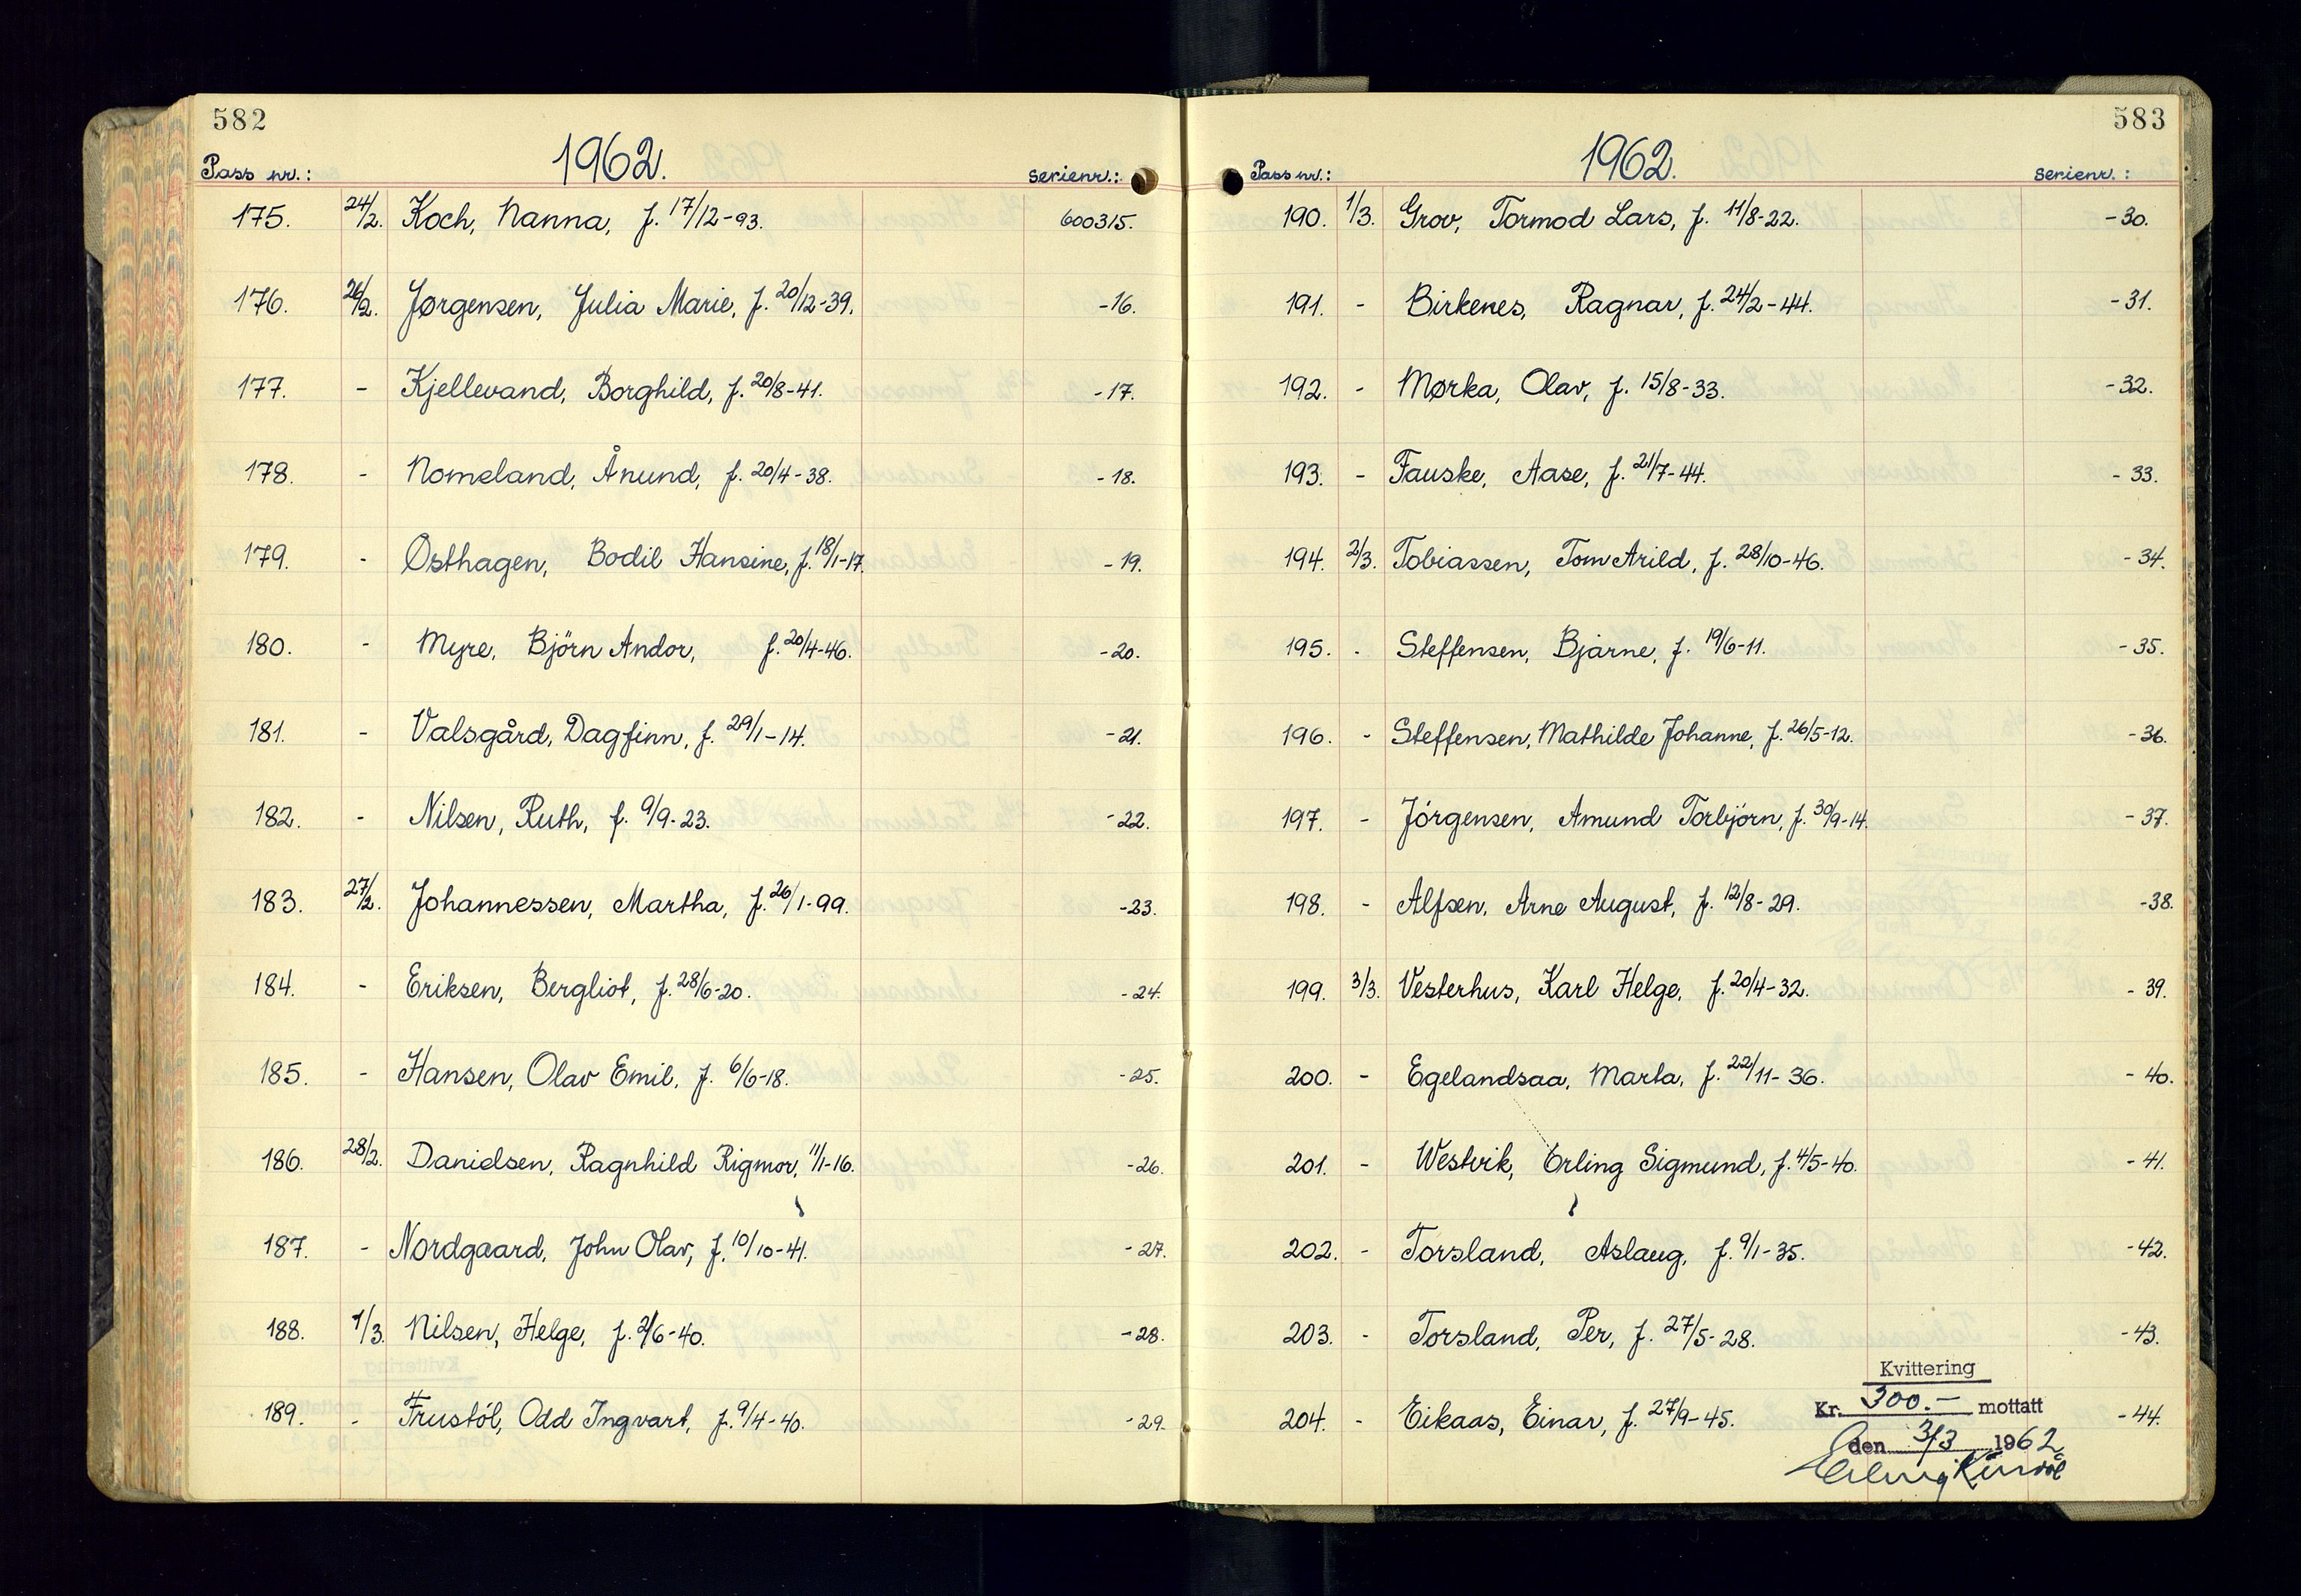 582
1962.
Pass nr.: serienr.:
175. 24/2. Koch, Nanna, f. 17/12-93. 600315.
176. 26/2. Jørgensen, Julia Marie, f. 20/12-39. -16.
177. - Kjellevand, Borghild, f. 20/8-41. -17.
178. - Nomeland, Ånund, f. 20/4-38. -18.
179. - Østhagen, Bodil Hansine, f. 18/1-17. -19.
180. - Myre, Björn Andor, f. 20/4-46. -20.
181. - Valsgård, Dagfinn, f. 29/1-14. -21.
182. - Nilsen, Ruth, f. 9/9-23. -22.
183. 27/2. Johannessen, Martha, f. 26/1-99. -23.
184. - Eriksen, Bergliot, f. 28/6-20. -24.
185. - Hansen, Olav Emil, f. 6/6-18. -25.
186. 28/2. Danielsen, Ragnhild Rigmor, 11/1-16. -26.
187. - Nordgaard, John Olav, f. 10/10-41. -27.
188. 1/3. Nilsen, Helge, f. 2/6-40. -28.
189. - Frustöl, Odd Ingvart, f. 9/4-40. -29.
583
1962.
Pass nr.: serienr.:
190. 1/3. Grov, Tormod Lars, f. 11/8-22. -30.
191. - Birkenes, Ragnar, f. 24/2-44. -31.
192. - Mørka, Olav, f. 15/8-33. -32.
193. - Fauske, Aase, f. 21/7-44. -33.
194. 2/3. Tobiassen, Tom Arild, f. 28/10-46. -34.
195. - Steffensen, Bjarne, f. 19/6-11. -35.
196. - Steffensen, Mathilde Johanne, f. 26/5-12. -36.
197. - Jörgensen, Amund Torbjörn, f. 30/9-14. -37.
198. - Alfsen, Arne August, f. 12/8-29. -38.
199. 3/3. Vesterhus, Karl Helge, f. 20/4-32. -39.
200. - Egelandsaa, Marta, f. 22/11-36. -40.
201. - Westvik, Erling Sigmund, f. 4/5-40. -41.
202. - Torsland, Aslaug, f. 9/1-35. -42.
203. - Torsland, Per, f. 27/5-28. -43.
204. - Eikaas, Einar, f. 27/9-45. -44.
Kvittering
Kr. 300.- mottatt
den 3/3 1962